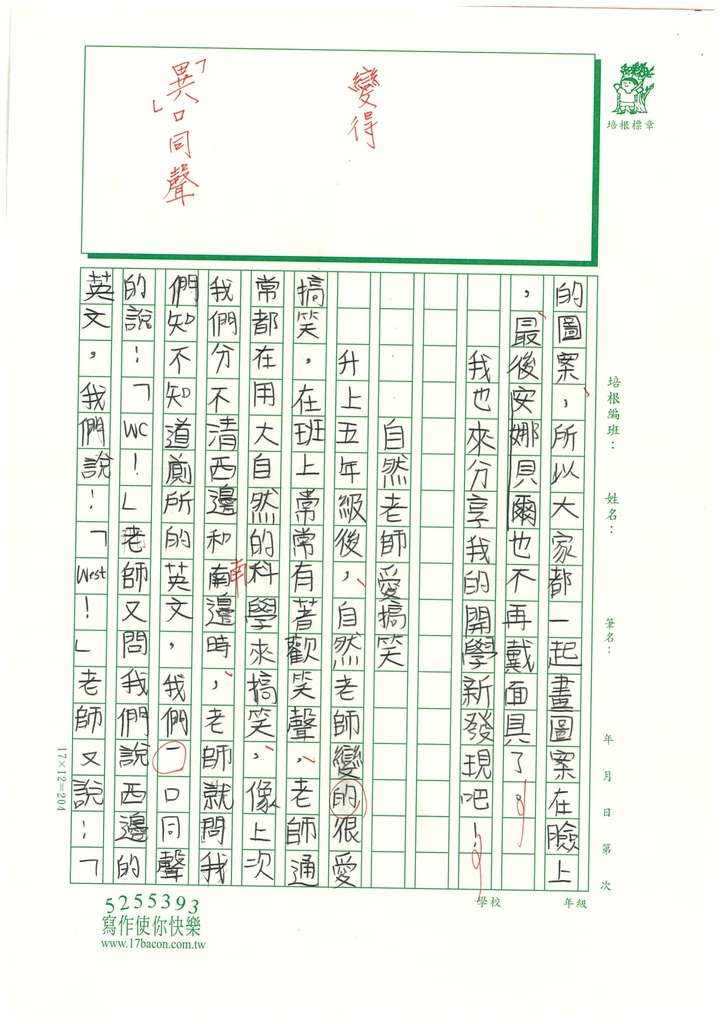 變得
「異」口同聲
培根標章
培根編班： 姓名： 筆名： 年 月 日 第 次
的圖案，所以大家都一起畫圖案在臉上
，最後安娜貝爾也不再戴面具了。
我也來分享我的開學新發現吧！
自然老師愛搞笑
升上五年級後，自然老師變的很愛
搞笑，在班上常常有著歡笑聲，老師通
常都在用大自然的科學來搞笑，像上次
我們分不清西邊和南邊時，老師就問我
南
們知不知道廁所的英文，我們一口同聲
的說：「WC！」老師又問我們說西邊的
英文，我們說：「West！」老師又說：「
17×12=204
學校 年級
5255393
寫作使你快樂
www.17bacon.com.tw